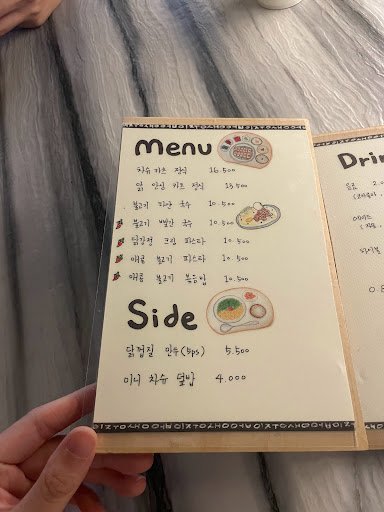 Menu
차슈카츠 정식 16.500
닭 안심 카츠 정식 15.500
불고기 하얀 국수 10.500
불고기 빨간 국수 10.500
닭강정 크림 파스타 10.500
매콤 불고기 파스타 10.500
매콤 불고기 볶음밥 10.500
Side
닭껍질 만두(5ps) 5.500
미니 차슈 덮밥 4.000
Drin
음료 2.